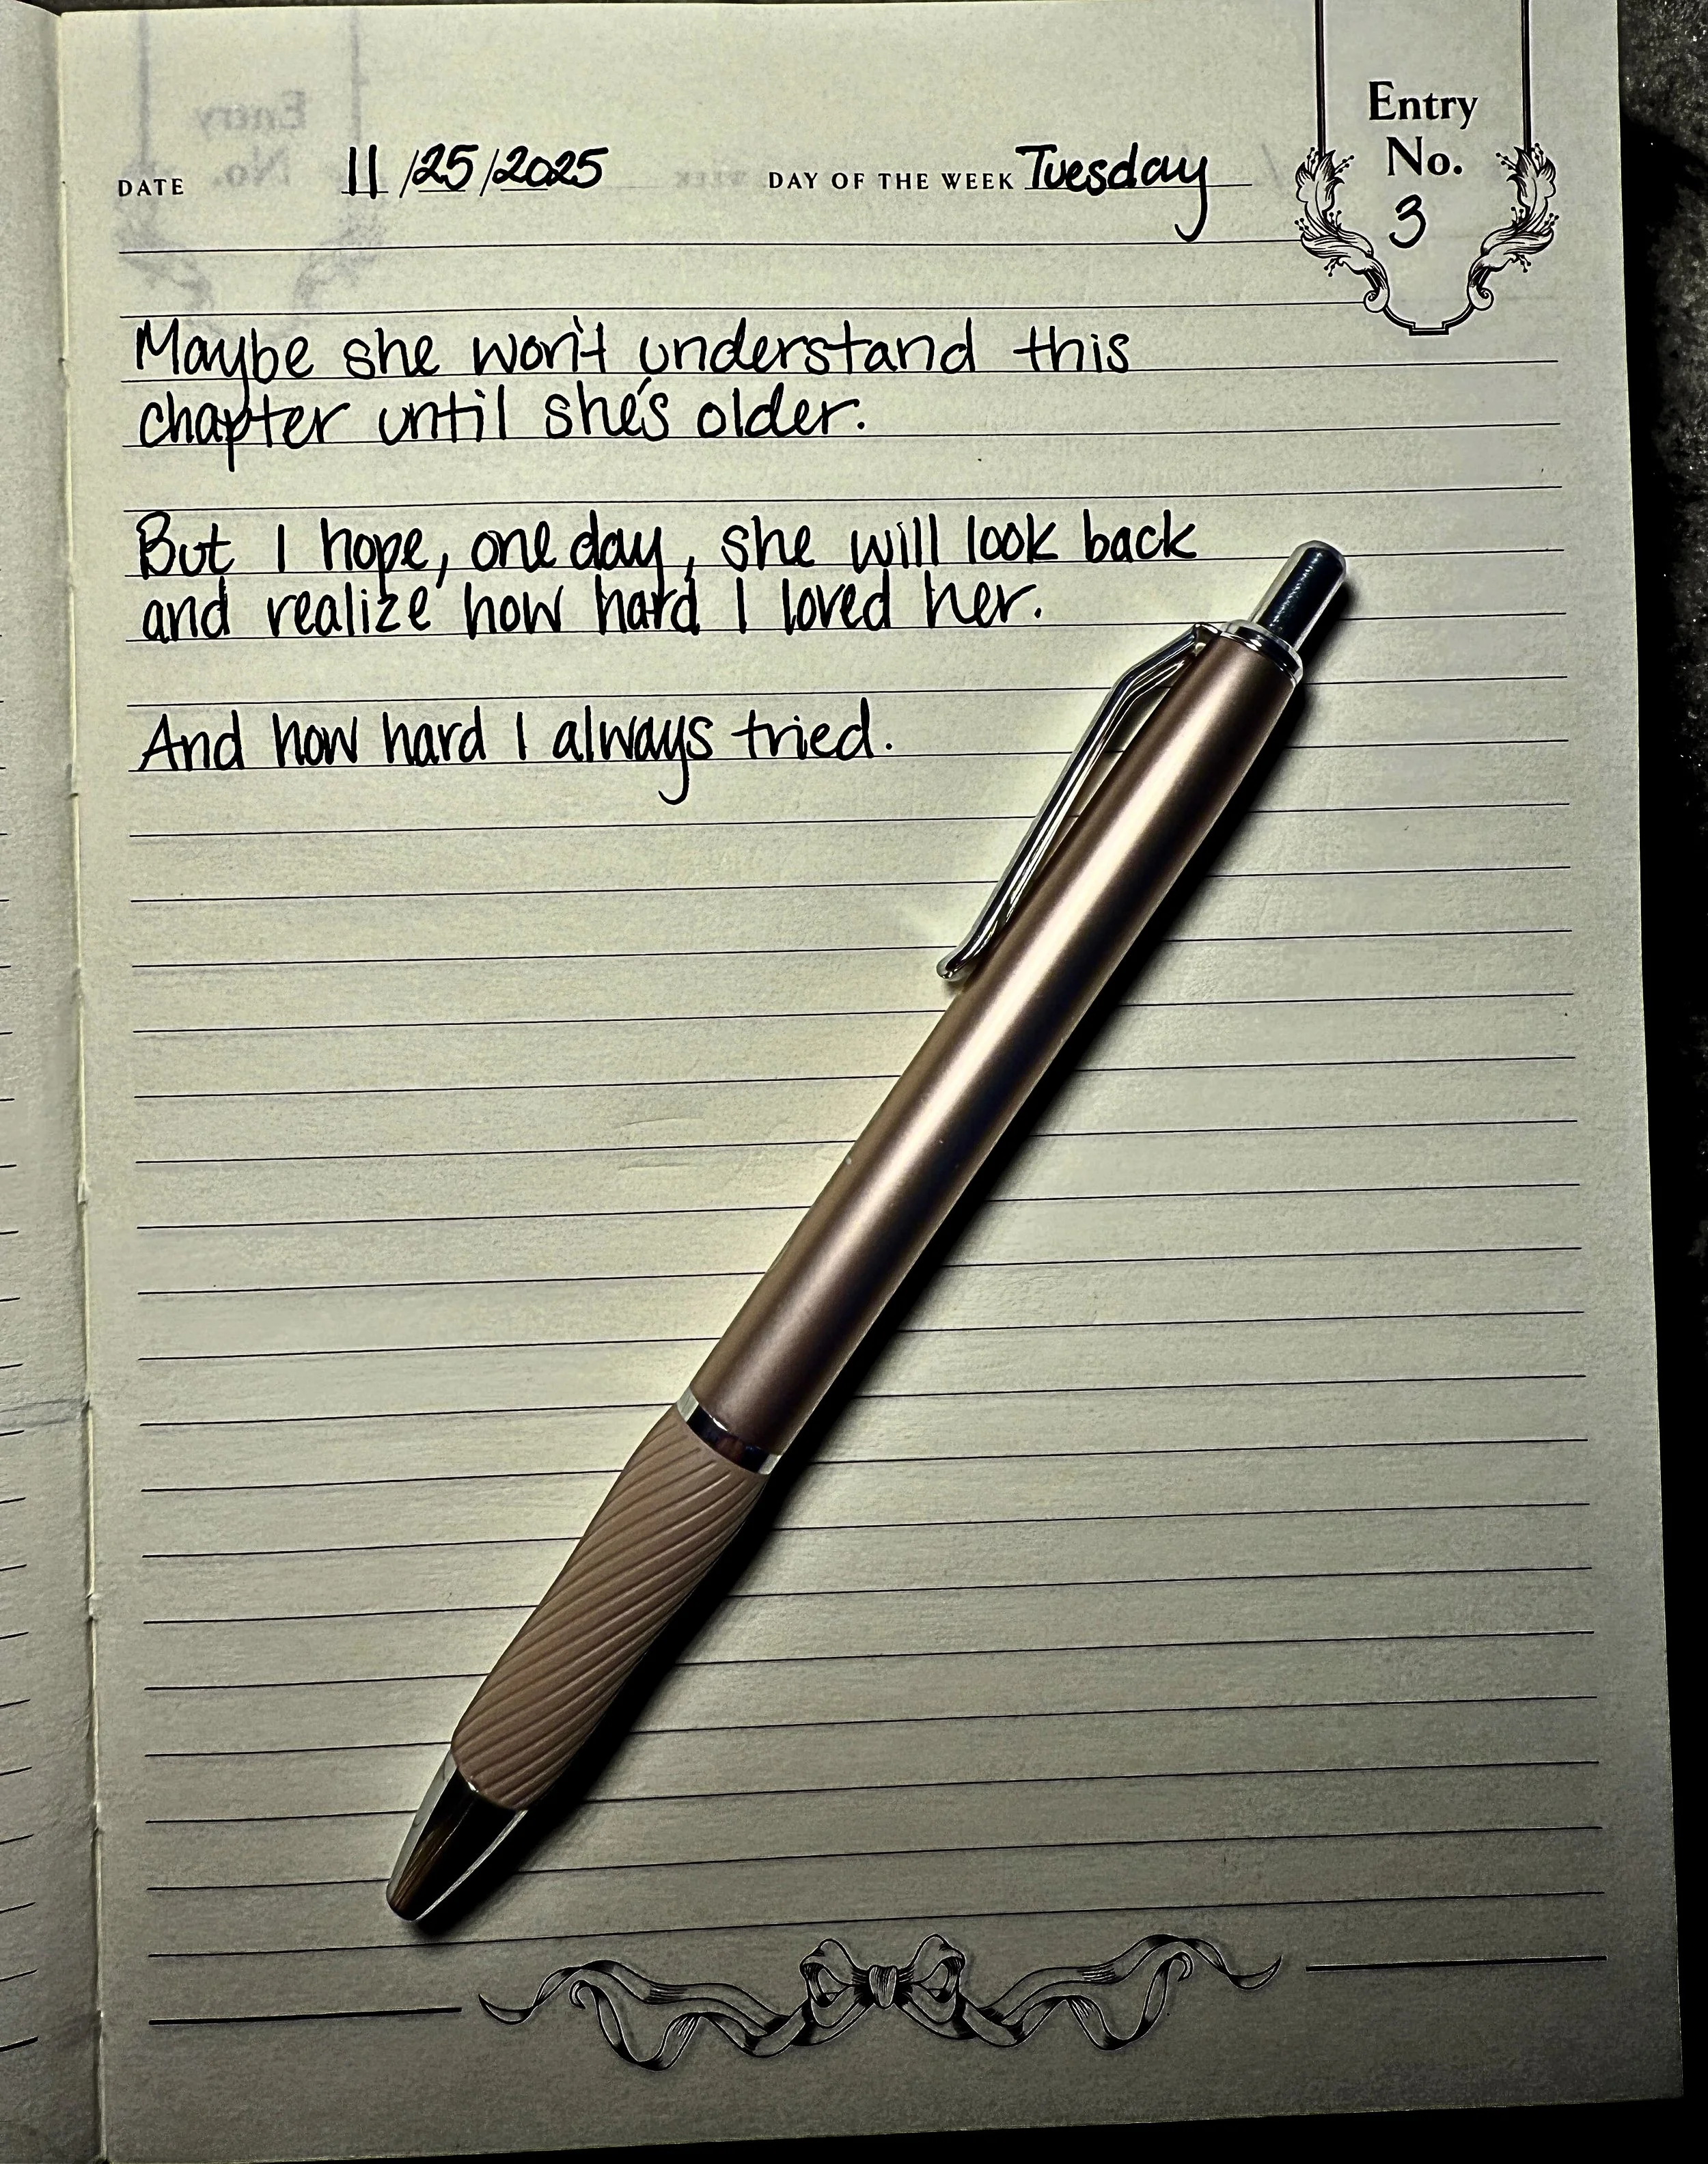 Entry
No.
3
DATE 11/25/2025 DAY OF THE WEEK Tuesday
Maybe she won't understand this
chapter until she's older.
But I hope, one day, she will look back
and realize how hard I loved her.
And how hard I always tried.